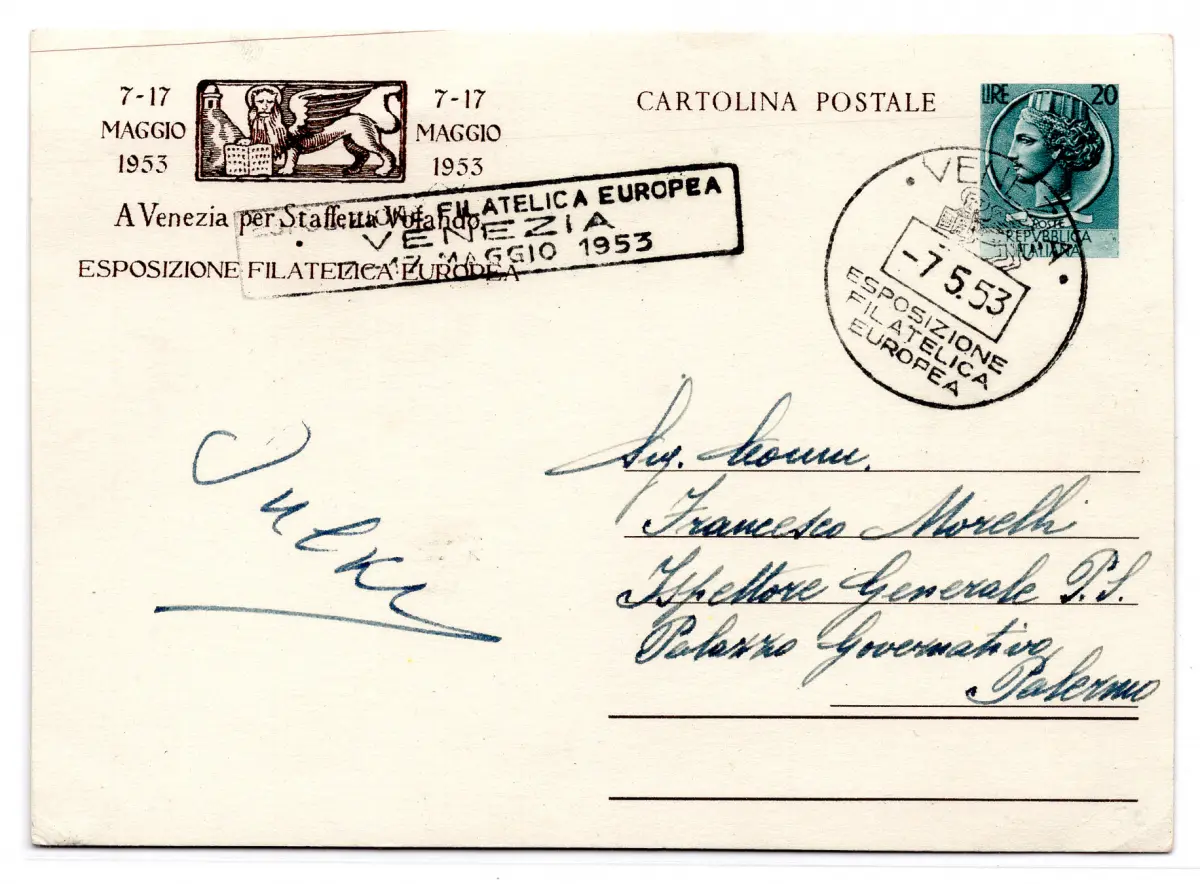 7-17
MAGGIO
1953
7-17
MAGGIO
1953
A Venezia per Staffetta Volando
ESPOSIZIONE FILATELICA EUROPEA
ESPOSIZIONE FILATELICA EUROPEA
VENEZIA
7-17 MAGGIO 1953
CARTOLINA POSTALE
LIRE 20
POSTE
REPVBBLICA
ITALIANA
VENEZIA
-7.5.53
ESPOSIZIONE
FILATELICA
EUROPEA
Sig.
Francesco Morelli
Ispettore Generale P.S.
Palazzo Governativo
Palermo